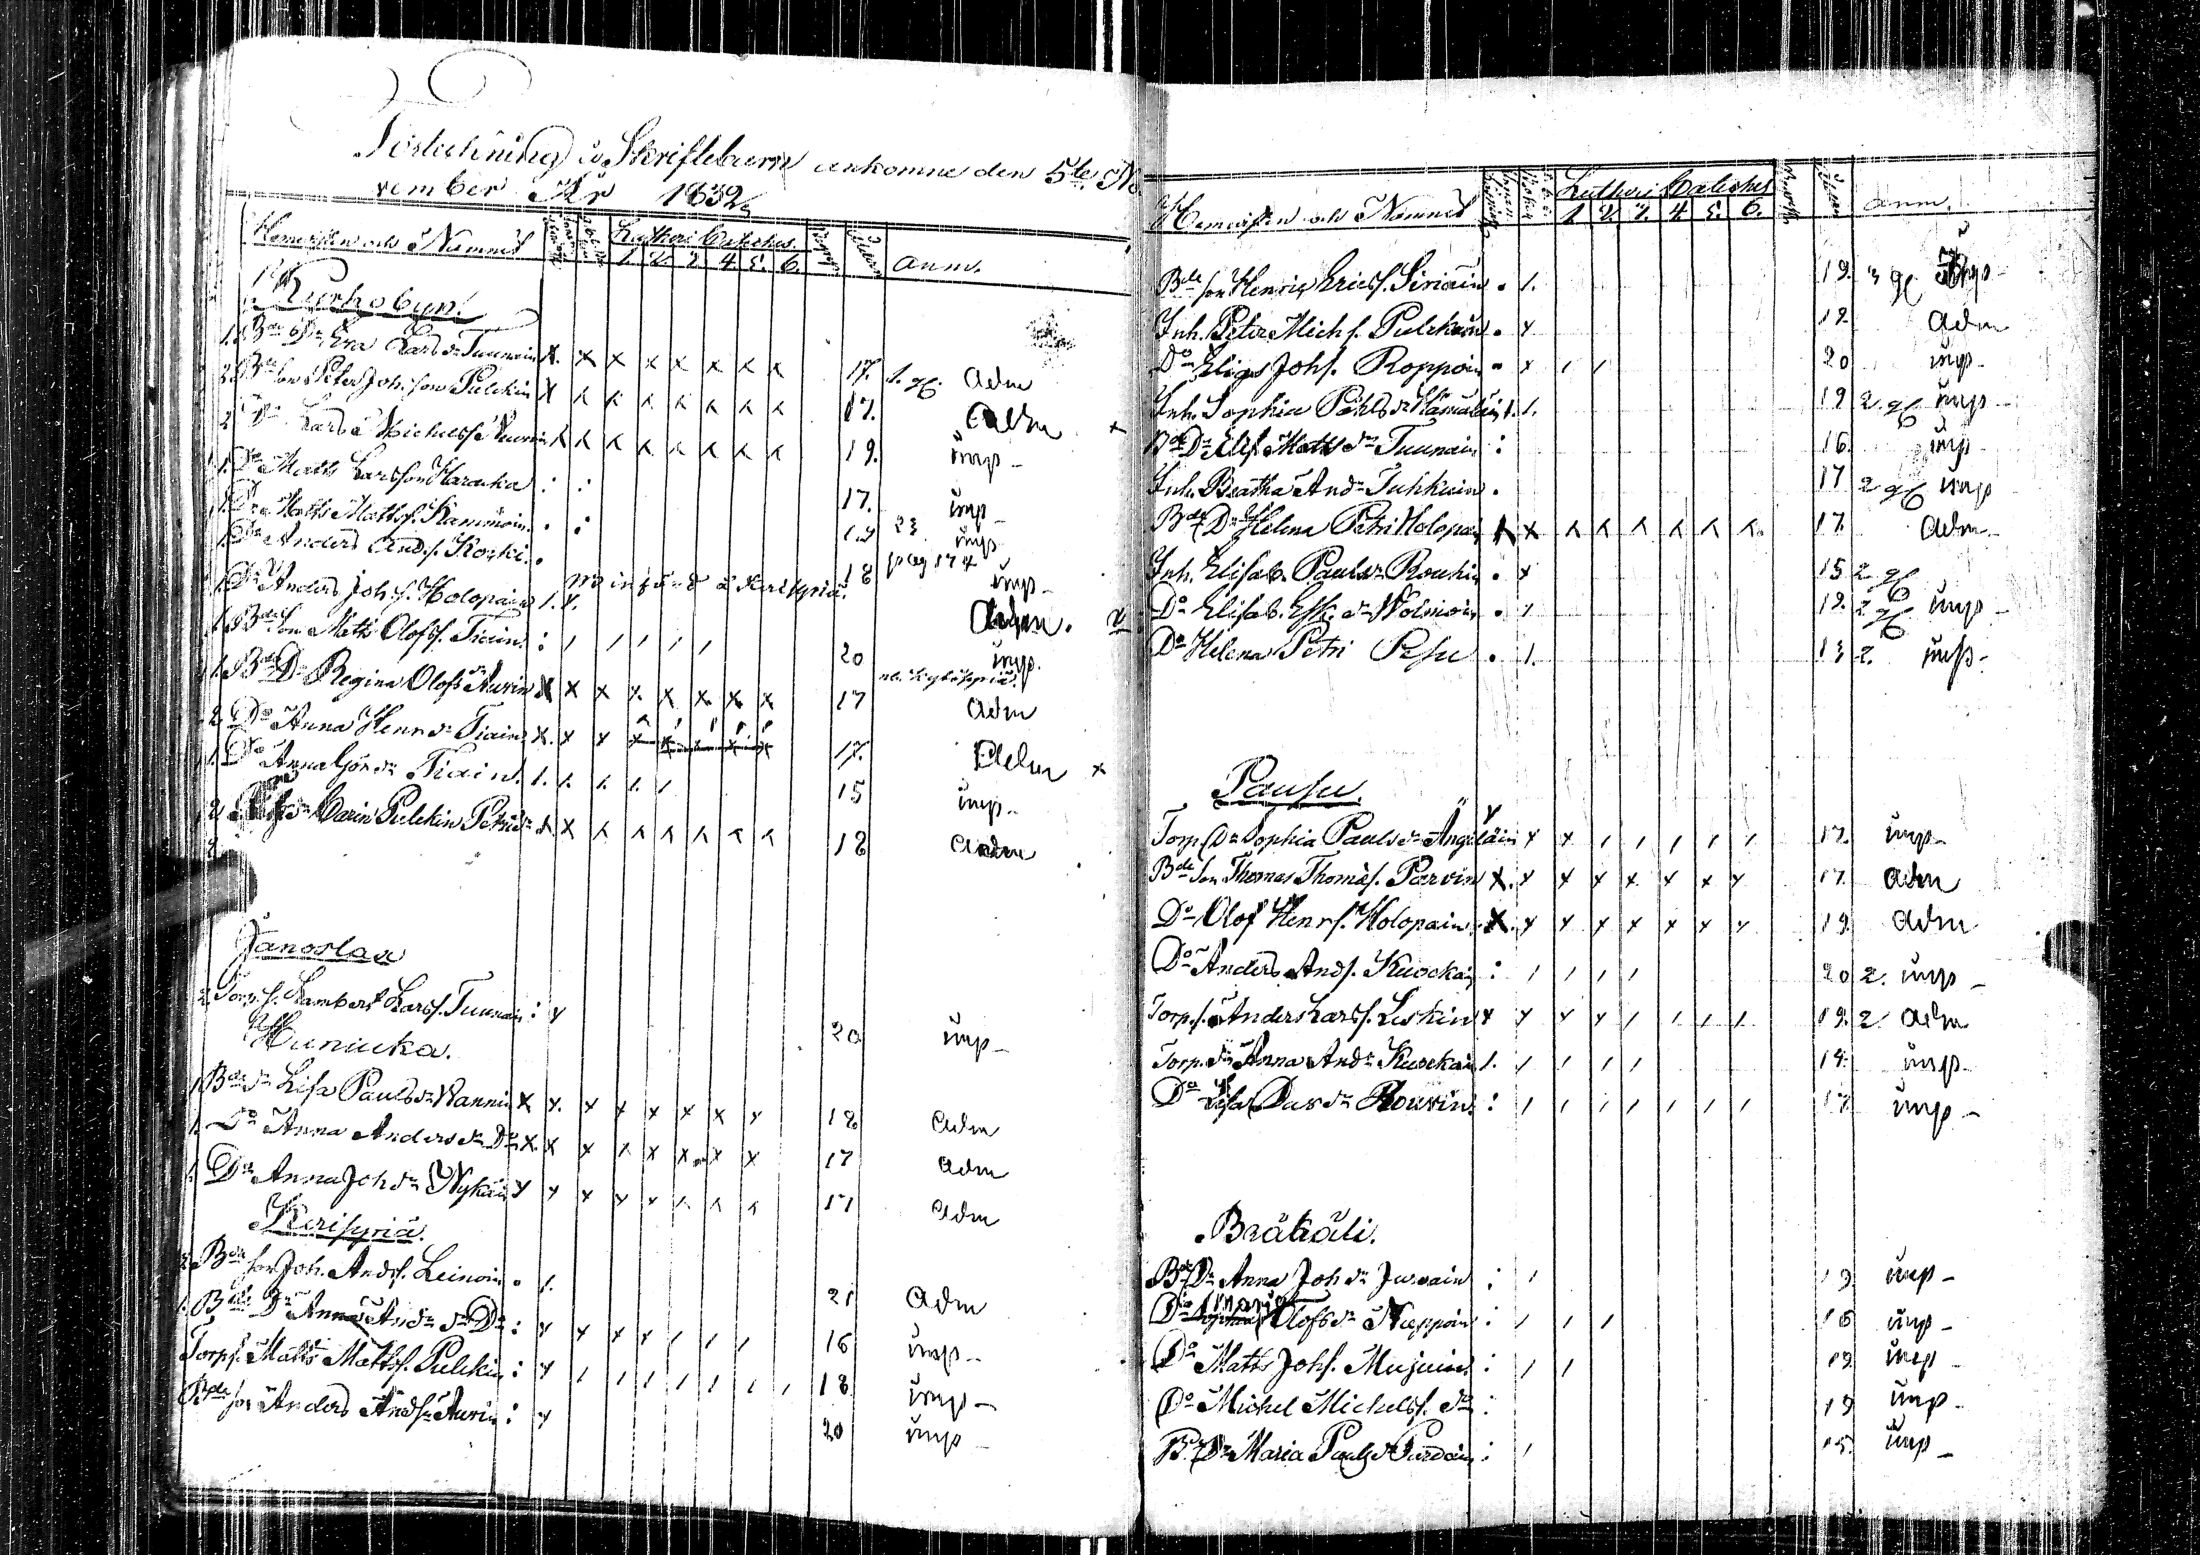 Förteckning å Skriftebarn ankomne den 5te No
vember År 1832
Hemvisten och Namnet Lutheri Cateches. Ålder anm.
1 2 3 4 5. 6.
Kurkobyn.
1. Bde Dr Eva Lars dr Tuunain X. X X X X X X X 17. 1. gg. adm
2. Bde son Peter Joh. son Pulckin X X X X X X X X 17. adm
2 Lars Michelss. X X X X X X X X 19. imp
1. Do Matts Larsson Karauka : : 17. imp
1. Do Matts Mattss. Kammoin . : 19 23 imp
1. Do Anders Ands. Koski . 18 pag 174 imp
1. Do Anders Johs. Holopain 1. X. adm.
1. Bde son Matts Olofss. Tiain : / / / / / 20 imp.
1. Bde Dr Regina Olofs dr Auvin X X X X X X X X 17 adm
2 Do Anna Henr dr Tiain X. X X X X X X X 17. adm
1. Do Anna Gör dr Tiain 1. 1. 1. 1. / 15 imp
2 Carin Pulckin Petri dr X X X X X X X X 18 adm
Janoslax
2 Torp. s. Lambert Larss. Tuunain : X 20 imp
Huniucka.
1 Bde dr Lisa Pauls dr Wannin X X. X X X X X X 18 adm
1. Do Anna Anders dr Do X. X X X X X X X 17 adm
1. Do Anna Joh dr Nykäin X X X X X X X X 17 adm
Kerisyriä.
2. Bde son Joh. Ands. Leinoin . 1. 21 adm
1. Bde Dr Anna And dr Do : X X X X / / / 16 imp
Torp s. Matts Mattss. Pulckin : X / / / / / / / 18 imp
Bde son Anders Auvin : X 20 imp
Hemvisten och Namnet Lutheri Cateches Ålder anm.
1. 2. 3. 4 5. 6.
Bde son Henric Ericss. Siriain . 1. 19. 3 gg imp
Inh. Peter Michs. Pulckain . X 18. adm
Do Elias Johs. Roppoin . X / / 20 imp
Inh. Sophia Påhls dr Hämäläin 1. 1. 19 2 gg imp
Bde Dr Elis Matts dr Tuunain : 16. imp
Inh. Beatha And dr Tuhkain . 17 2 gg imp
Bde Dr Helena Petri Holopain X X X X X X X X. 17. adm
Inh. Elisab. Pauls dr Rouhin . X 15 2 gg
Do Elisab. Esk. dr Wolmoin . 1 18. 2 gg imp
Do Helena Petri Pesu . 1. 13 2. imp
Pausu.
Torp Dr Sophia Pauls dr Ängeläin X X / / / / / 17. imp
Bde son Thomas Thomas s. Parvin X. X X X X X X X 17. adm
Do Olof Henr s. Holopain X. X X X X X X X 19. adm
Do Anders Ands. Kuockain : / / / / 20 2. imp
Torp. s. Anders Larss. Leskin X X X X / / / / 19. 2 adm
Torp. dr Anna And dr Kuockain 1. / / / / 14. imp
Do Lisa Dav dr Rouvin : / / / / / / / 17 imp
Bräkäli.
Bde Dr Anna Joh dr Juvain : / 19 imp
Maria
Do Olofs dr Nuppoin : / / / 16 imp
Do Matts Johs. Mujuin : / / 19. imp
Do Michel Michelss. Do : 19 imp
B. Dr Maria Pauls dr Pardain : / 15. imp